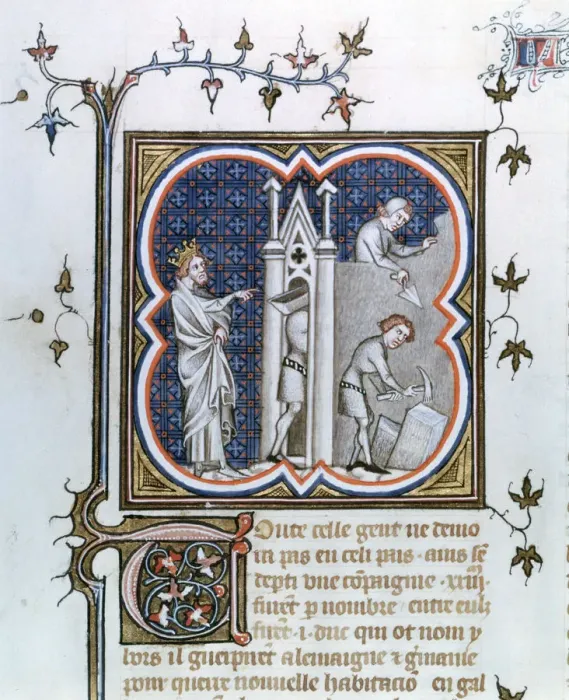 Toute celle gent ne demo
ra pas en celi pais · ains se
depti une cōpaignie · xxiij ·
furēt p nombre · entre eulz
furēt · i · duc qui ot nom y
bors il guerpirēt alemaigne ⁊ gmanie
pour querre nouuelle habitaciō en gal